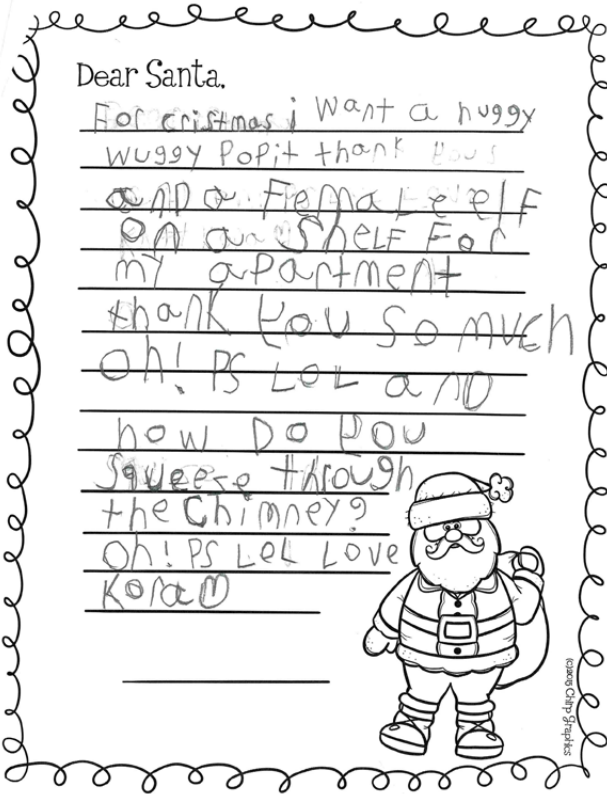 Dear Santa,
For cristmas i want a huggy
wuggy Popit thank you
and a Female elf
on a Shelf For
my apartment
thank you so much
oh! PS LOL and
how Do you
squeese through
the Chimney?
Oh! PS LOL Love
Kora
(c)2015 Chirp Graphics